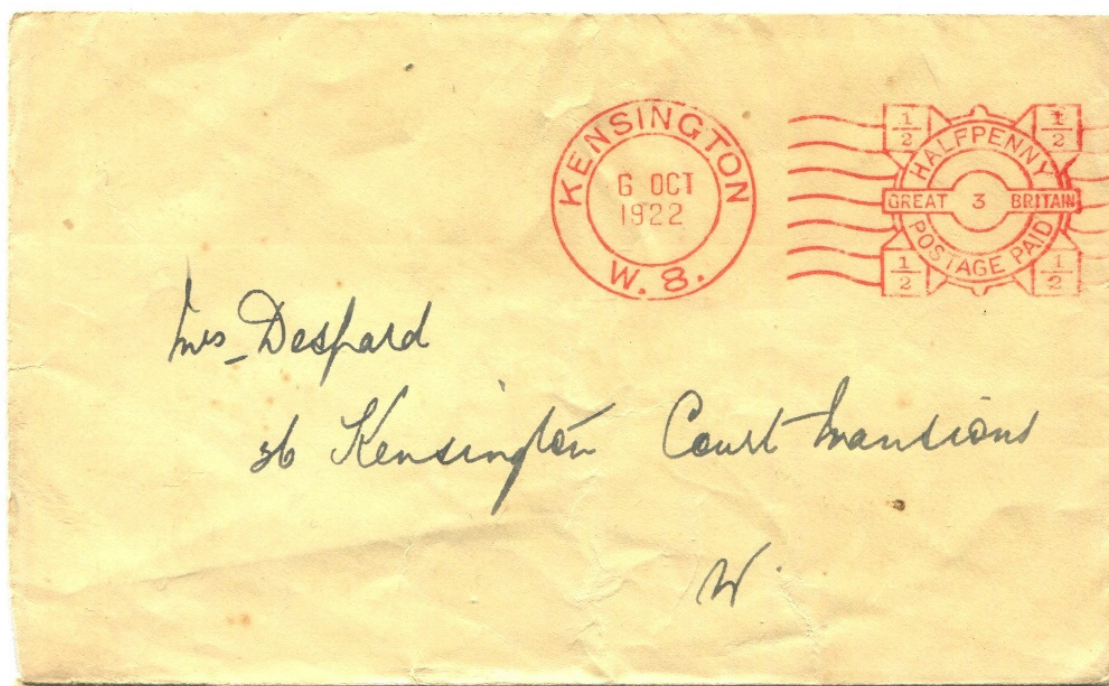 KENSINGTON
6 OCT
1922
W. 8.
1/2 1/2
HALFPENNY
GREAT 3 BRITAIN
POSTAGE PAID
1/2 1/2
Mrs Despard
Kensington Court Mansions
W.